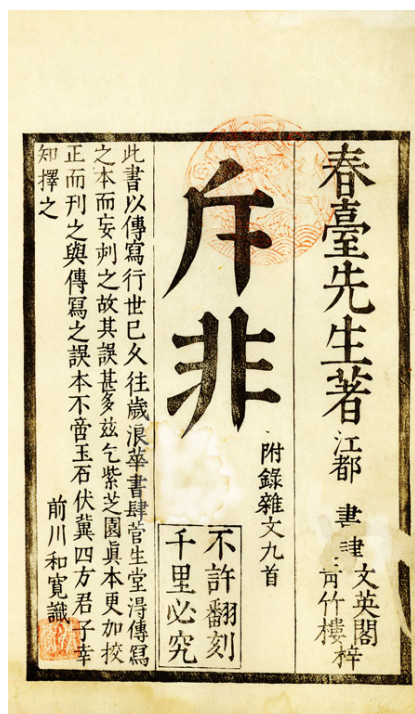 春臺先生著
江都
書肆
文英閣
青竹樓
梓
斥非
附錄雜文九首
不許翻刻
千里必究
此書以傳寫行世已久往歲浪華書肆菅生堂得傳寫
之本而妄刻之故其誤甚多玆乞紫芝園眞本更加挍
正而刊之與傳寫之誤本不啻玉石伏冀四方君子幸
知擇之
前川和寬識